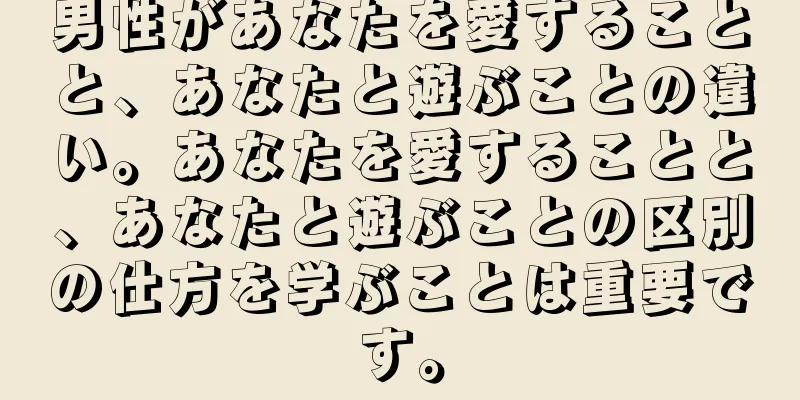 男性があなたを愛すること
と、あなたと遊ぶことの違
い。あなたを愛することと
、あなたと遊ぶことの区別
の仕方を学ぶことは重要で
す。